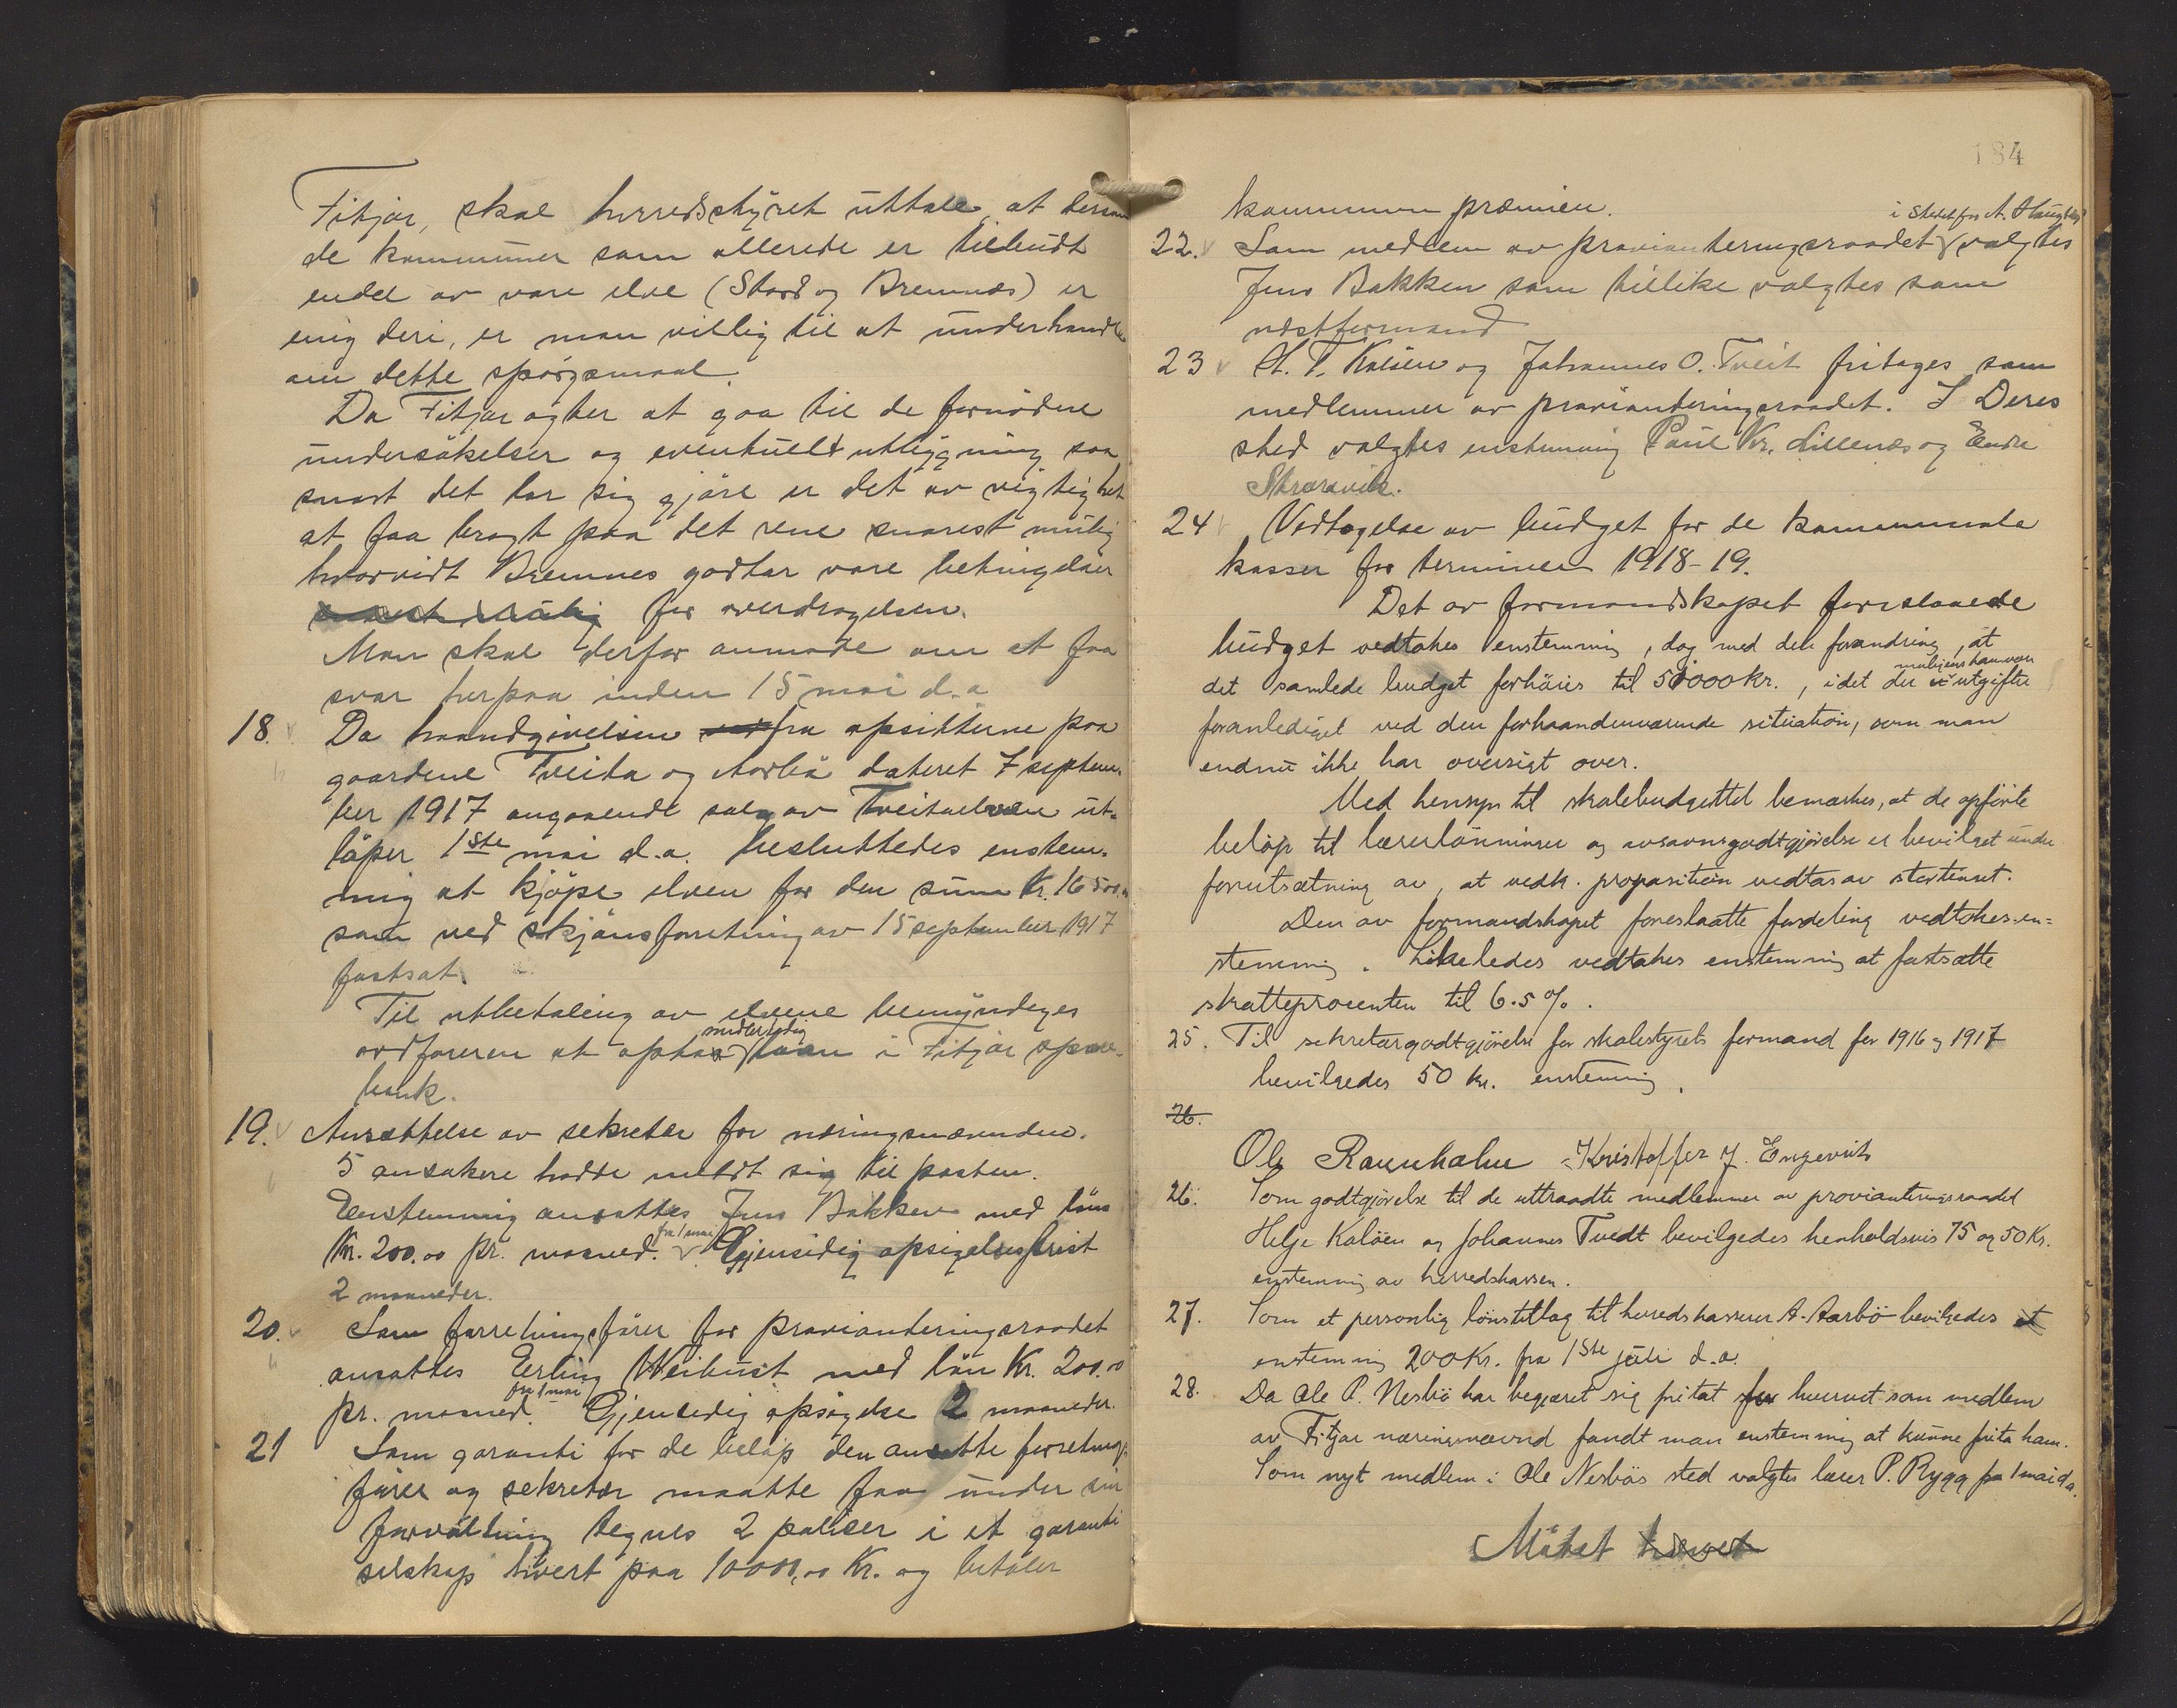 Fitjar, skal herredsstyret uttale, at dersom
de kommuner som allerede er tilbudt
endel av vare elve (Stord og Bremnes) er
enig deri, er man villig til at underhandle
om dette spörgsmaal.
Da Fitjar agter at gaa til de fornödne
undersökelser og eventuelt utbygning saa
snart det lar sig gjöre er det av vigtighet
at faa bragt paa det rene snarest mulig
hvorvidt Bremnes godtar vare betingelser
for overdragelsen.
Man skal derfor anmode om at faa
svar herpaa inden 15 mai d.a
18. Da haandgivelsen fra opsitterne paa
gaardene Tveita og Aarbö dateret 7 septem-
ber 1917 angaaende salg av Tveitaelven ut-
löper 1ste mai d.a. besluttedes enstem-
mig at kjöpe elven for den sum Kr. 16500.00
som ved skjönsforretning av 15 september 1917
fastsat.
Til utbetaling av elvene bemyndiges
midlertidig
ordföreren at opta laan i Fitjar spare-
bank.
19. Ansættelse av sekretær for næringsnævnden.
5 ansökere hadde meldt sig til posten.
Enstemmig ansattes Jens Bakken med lön
fra 1 mai
Kr. 200.00 pr. maaned. Gjensidig opsigelsesfrist
2 maaneder.
20. Som forretningsförer for provianteringsraadet
ansattes Erling Weihust med lön Kr. 200.00
fra 1 mai
pr. maaned. Gjensidig opsigelse 2 maaneder.
21 Som garanti for de belöp den ansatte forretnings-
förer og sekretær maatte faa under sin
forvaltning tegnes 2 poliser i et garanti
selskap hvert paa 10000,00 Kr. og betaler
184
kommunen præmien.
i stedet for A. Haugland
22. Som medlem av provianteringsraadet valgtes
Jens Bakken som tillike valgtes som
næstformand
23 H. T. Kalöen og Johannes O. Tveit fritages som
medlemmer av provianteringsraadet. I Deres
sted valgtes enstemmig Paul Kr. Lillenes og Endre
Skraavik.
24 Vedtagelse av budget for de kommunale
kasser for terminen 1918-19.
Det av formandskapet foreslaaede
budget vedtokes enstemmig, dog med den forandring, at
muligens kan være
det samlede budget forhöies til 50000 kr., idet der utgifter
foranlediget ved den forhaandenværende situation, som man
endnu ikke har oversigt over.
Med hensyn til skolebudgettet bemærkes, at de opförte
belöp til lærerlönninger og avsavnsgodtgjörelse er bevilget under
forutsætning av, at vedk. proposition vedtas av stortinget.
Den av formandskapet foreslaatte fordeling vedtokes en=
stemmig. Likeledes vedtokes enstemmig at fastsætte
skatteprocenten til 6.5 %.
25. Til sekretærgodtgjörelse for skolestyrets formand for 1916 og 1917
bevilgedes 50 kr. enstemmig.
26.
Ole Raunholm Kristoffer J. Engevik
26. Som godtgjörelse til de uttraadte medlemmer av provianteringsraadet
Helje Kalöen og Johannes Tvedt bevilgedes henholdsvis 75 og 50 Kr.
enstemmig av herredskassen.
27. Som et personlig lönstillæg til herredskasserer A. Aarbö bevilgedes
enstemmig 200 Kr. fra 1ste juli d.a.
28. Da Ole P. Nesbö har begjæret sig fritat for hvervet som medlem
av Fitjar næringsnævnd fandt man enstemmig at kunne frita ham.
Som nyt medlem i Ole Nesbös sted valgtes lærer P. Rygg fra 1 mai d.a.
Mötet hævet